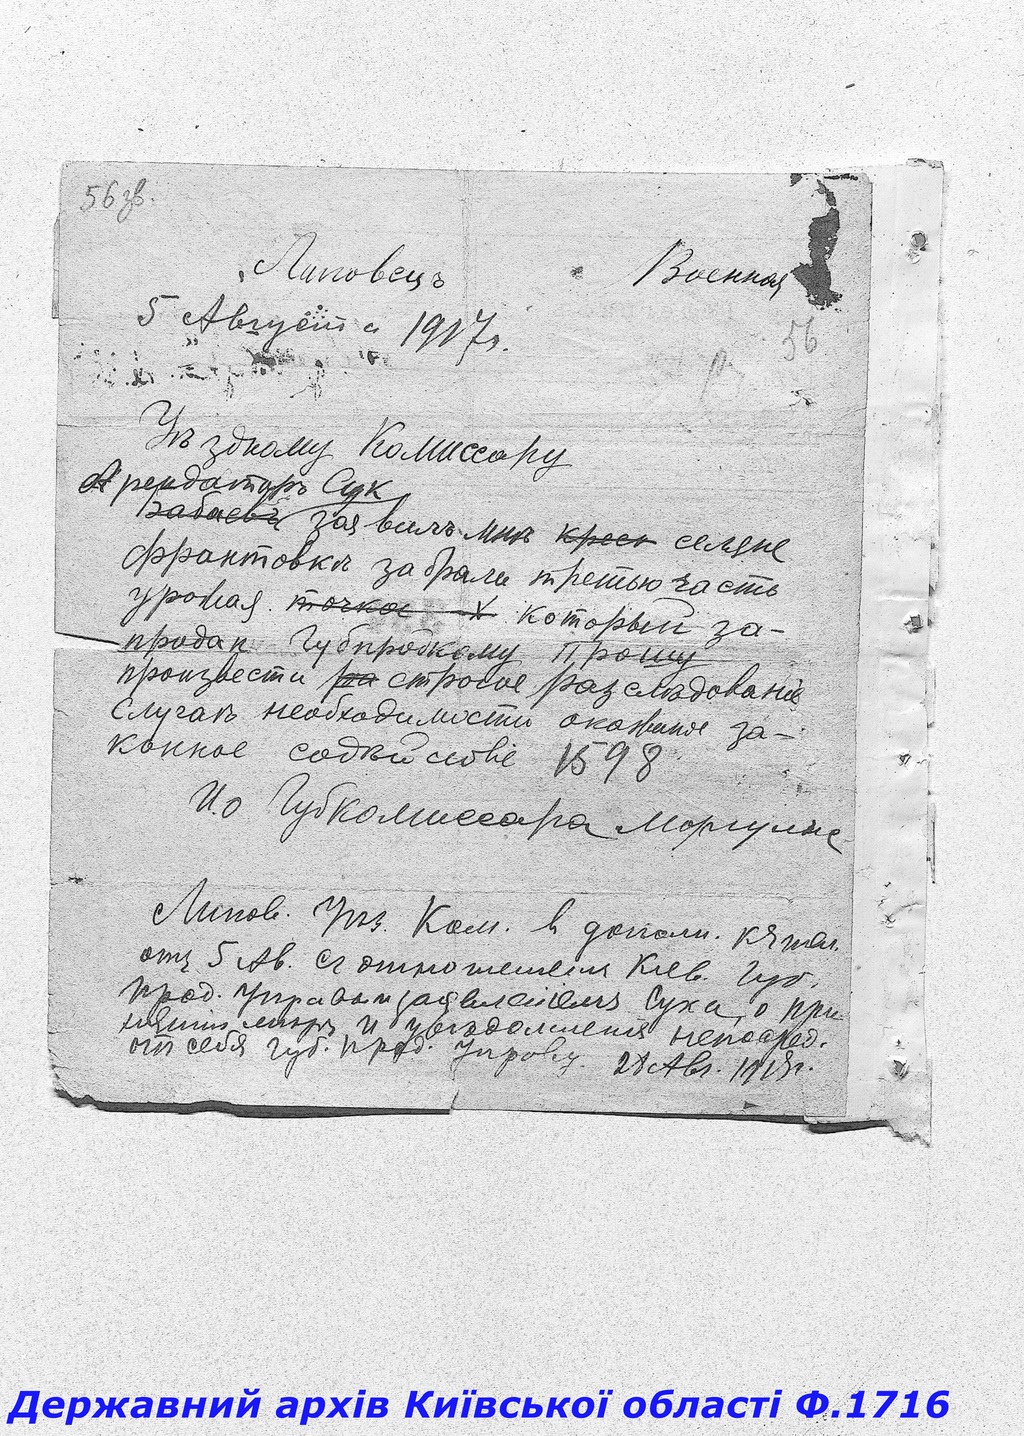 56 зв.
Липовец Военная
5 Августа 1917 г.
56
Уѣздному Комиссару
Арендаторъ Сук
Бабаевъ заявилъ мнѣ крест селяне
Франтовки забрали третью часть
урожая. точка который за-
продан Губпродкому Прошу
произвести ра строгое разслѣдованіе
Случаѣ необходимости окажите за-
конное содѣйствіе 1598
И.о Губкомиссара Моргулис
Липов. Уѣз. Ком. в дополн. к тел.
отъ 5 Ав. отношения Киев. Губ.
Прод. Управы заявленіемъ Сука, о при-
нятіи мѣръ и увѣдомления непосред.
от себя Губ. Прод. Управу. 28 Авг.
Державний архів Київської області Ф.1716